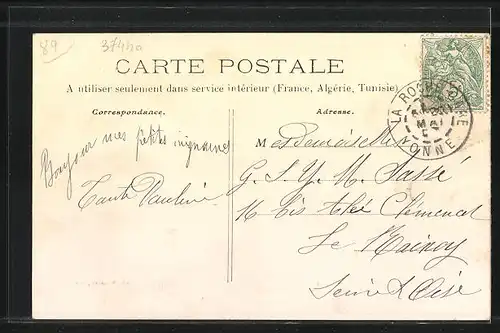 89
3744a
CARTE POSTALE
A utiliser seulement dans service intérieur (France, Algérie, Tunisie)
Correspondance.
Adresse.
LA ROCHE
YONNE
Bonjour mes petites mignonnes
Tante Pauline
Mesdemoiselles
G. S. Y. M. Sassé
16 bis allée Clémencet
Le Raincy
Seine & Oise